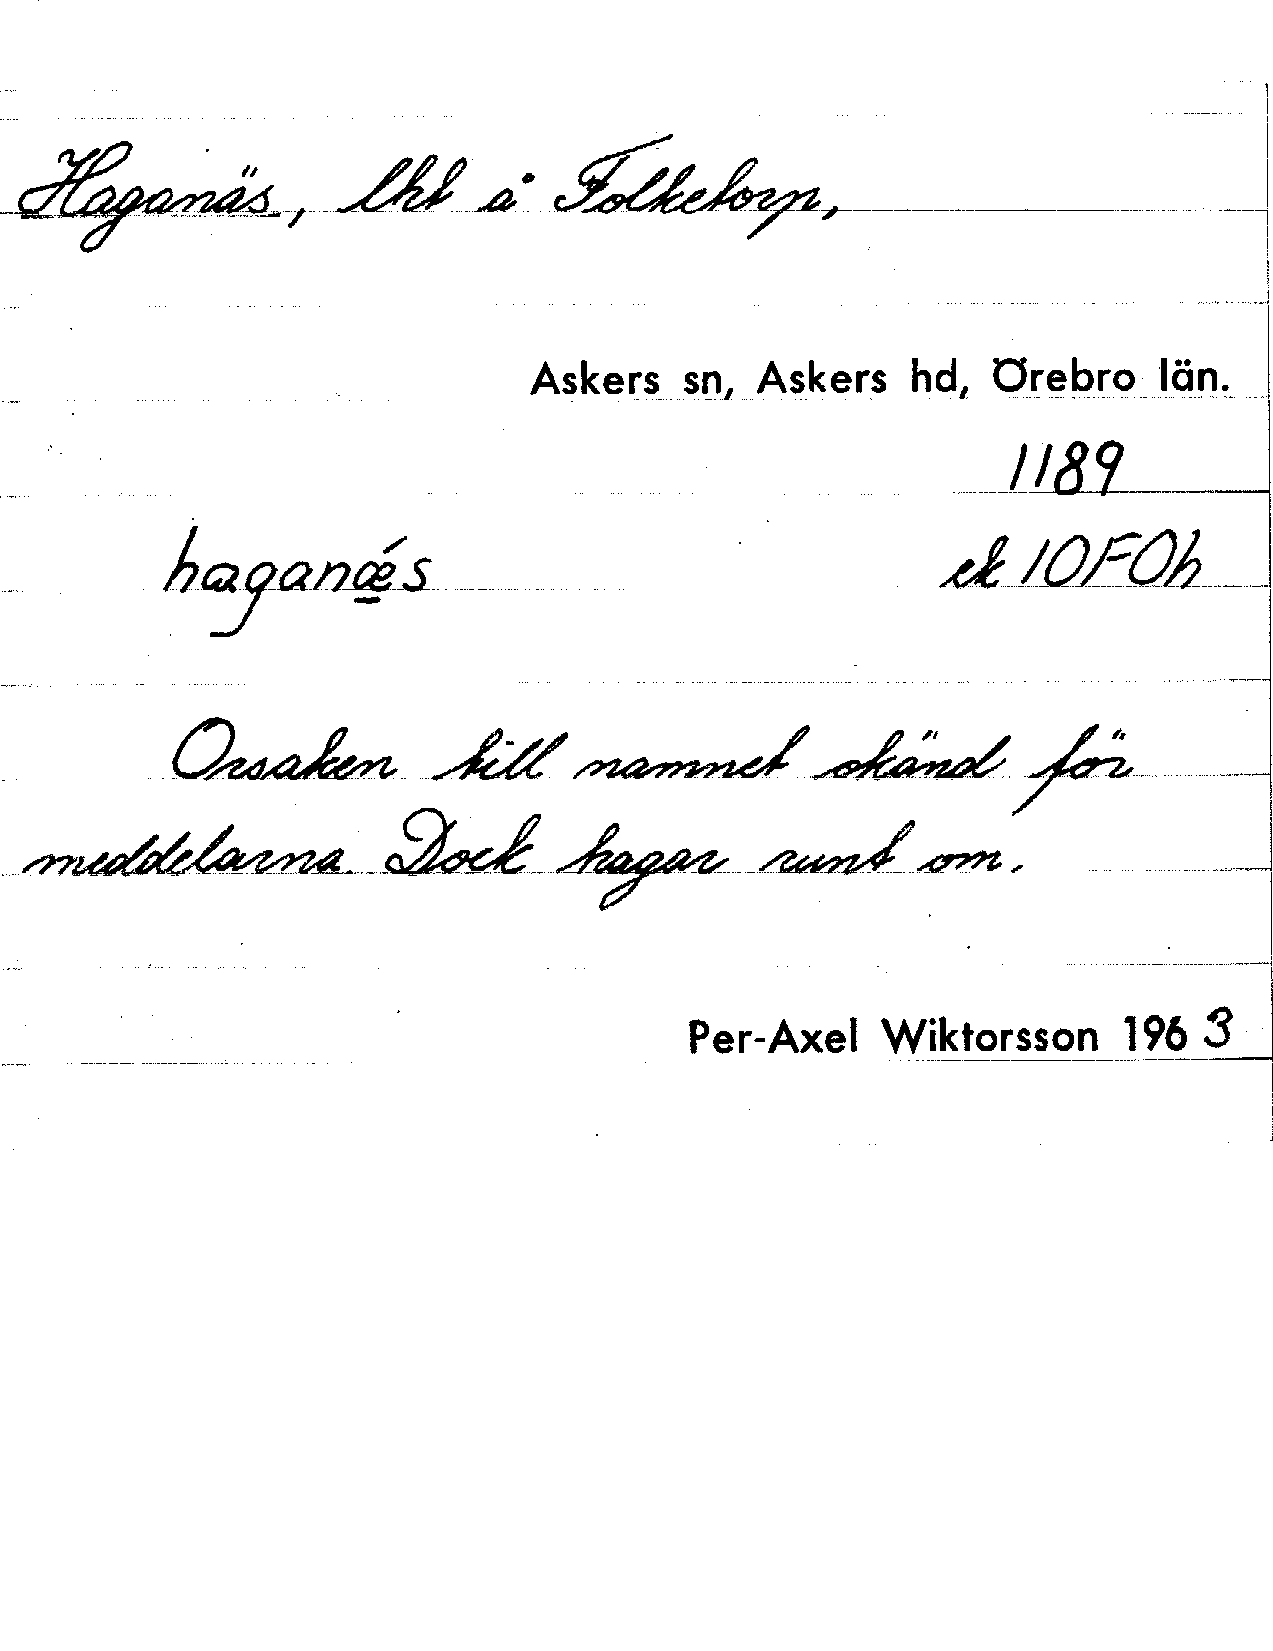 Haganäs, lht å Folketorp,
Askers sn, Askers hd, Örebro län.
1189
haganǽs ek 10F0h
Orsaken till namnet okänd för
meddelarna. Dock hagar runt om.
Per-Axel Wiktorsson 1963